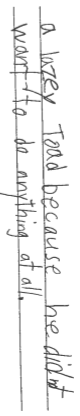 a lazey Toad because he did/nt
want to do anything at all.